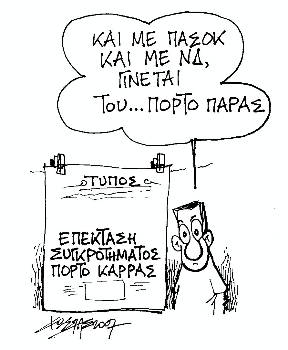 ΚΑΙ ΜΕ ΠΑΣΟΚ
ΚΑΙ ΜΕ ΝΔ,
ΓΙΝΕΤΑΙ
ΤΟΥ... ΠΟΡΤΟ ΠΑΡΑΣ
ΤΥΠΟΣ
ΕΠΕΚΤΑΣΗ
ΣΥΓΚΡΟΤΗΜΑΤΟΣ
ΠΟΡΤΟ ΚΑΡΡΑΣ